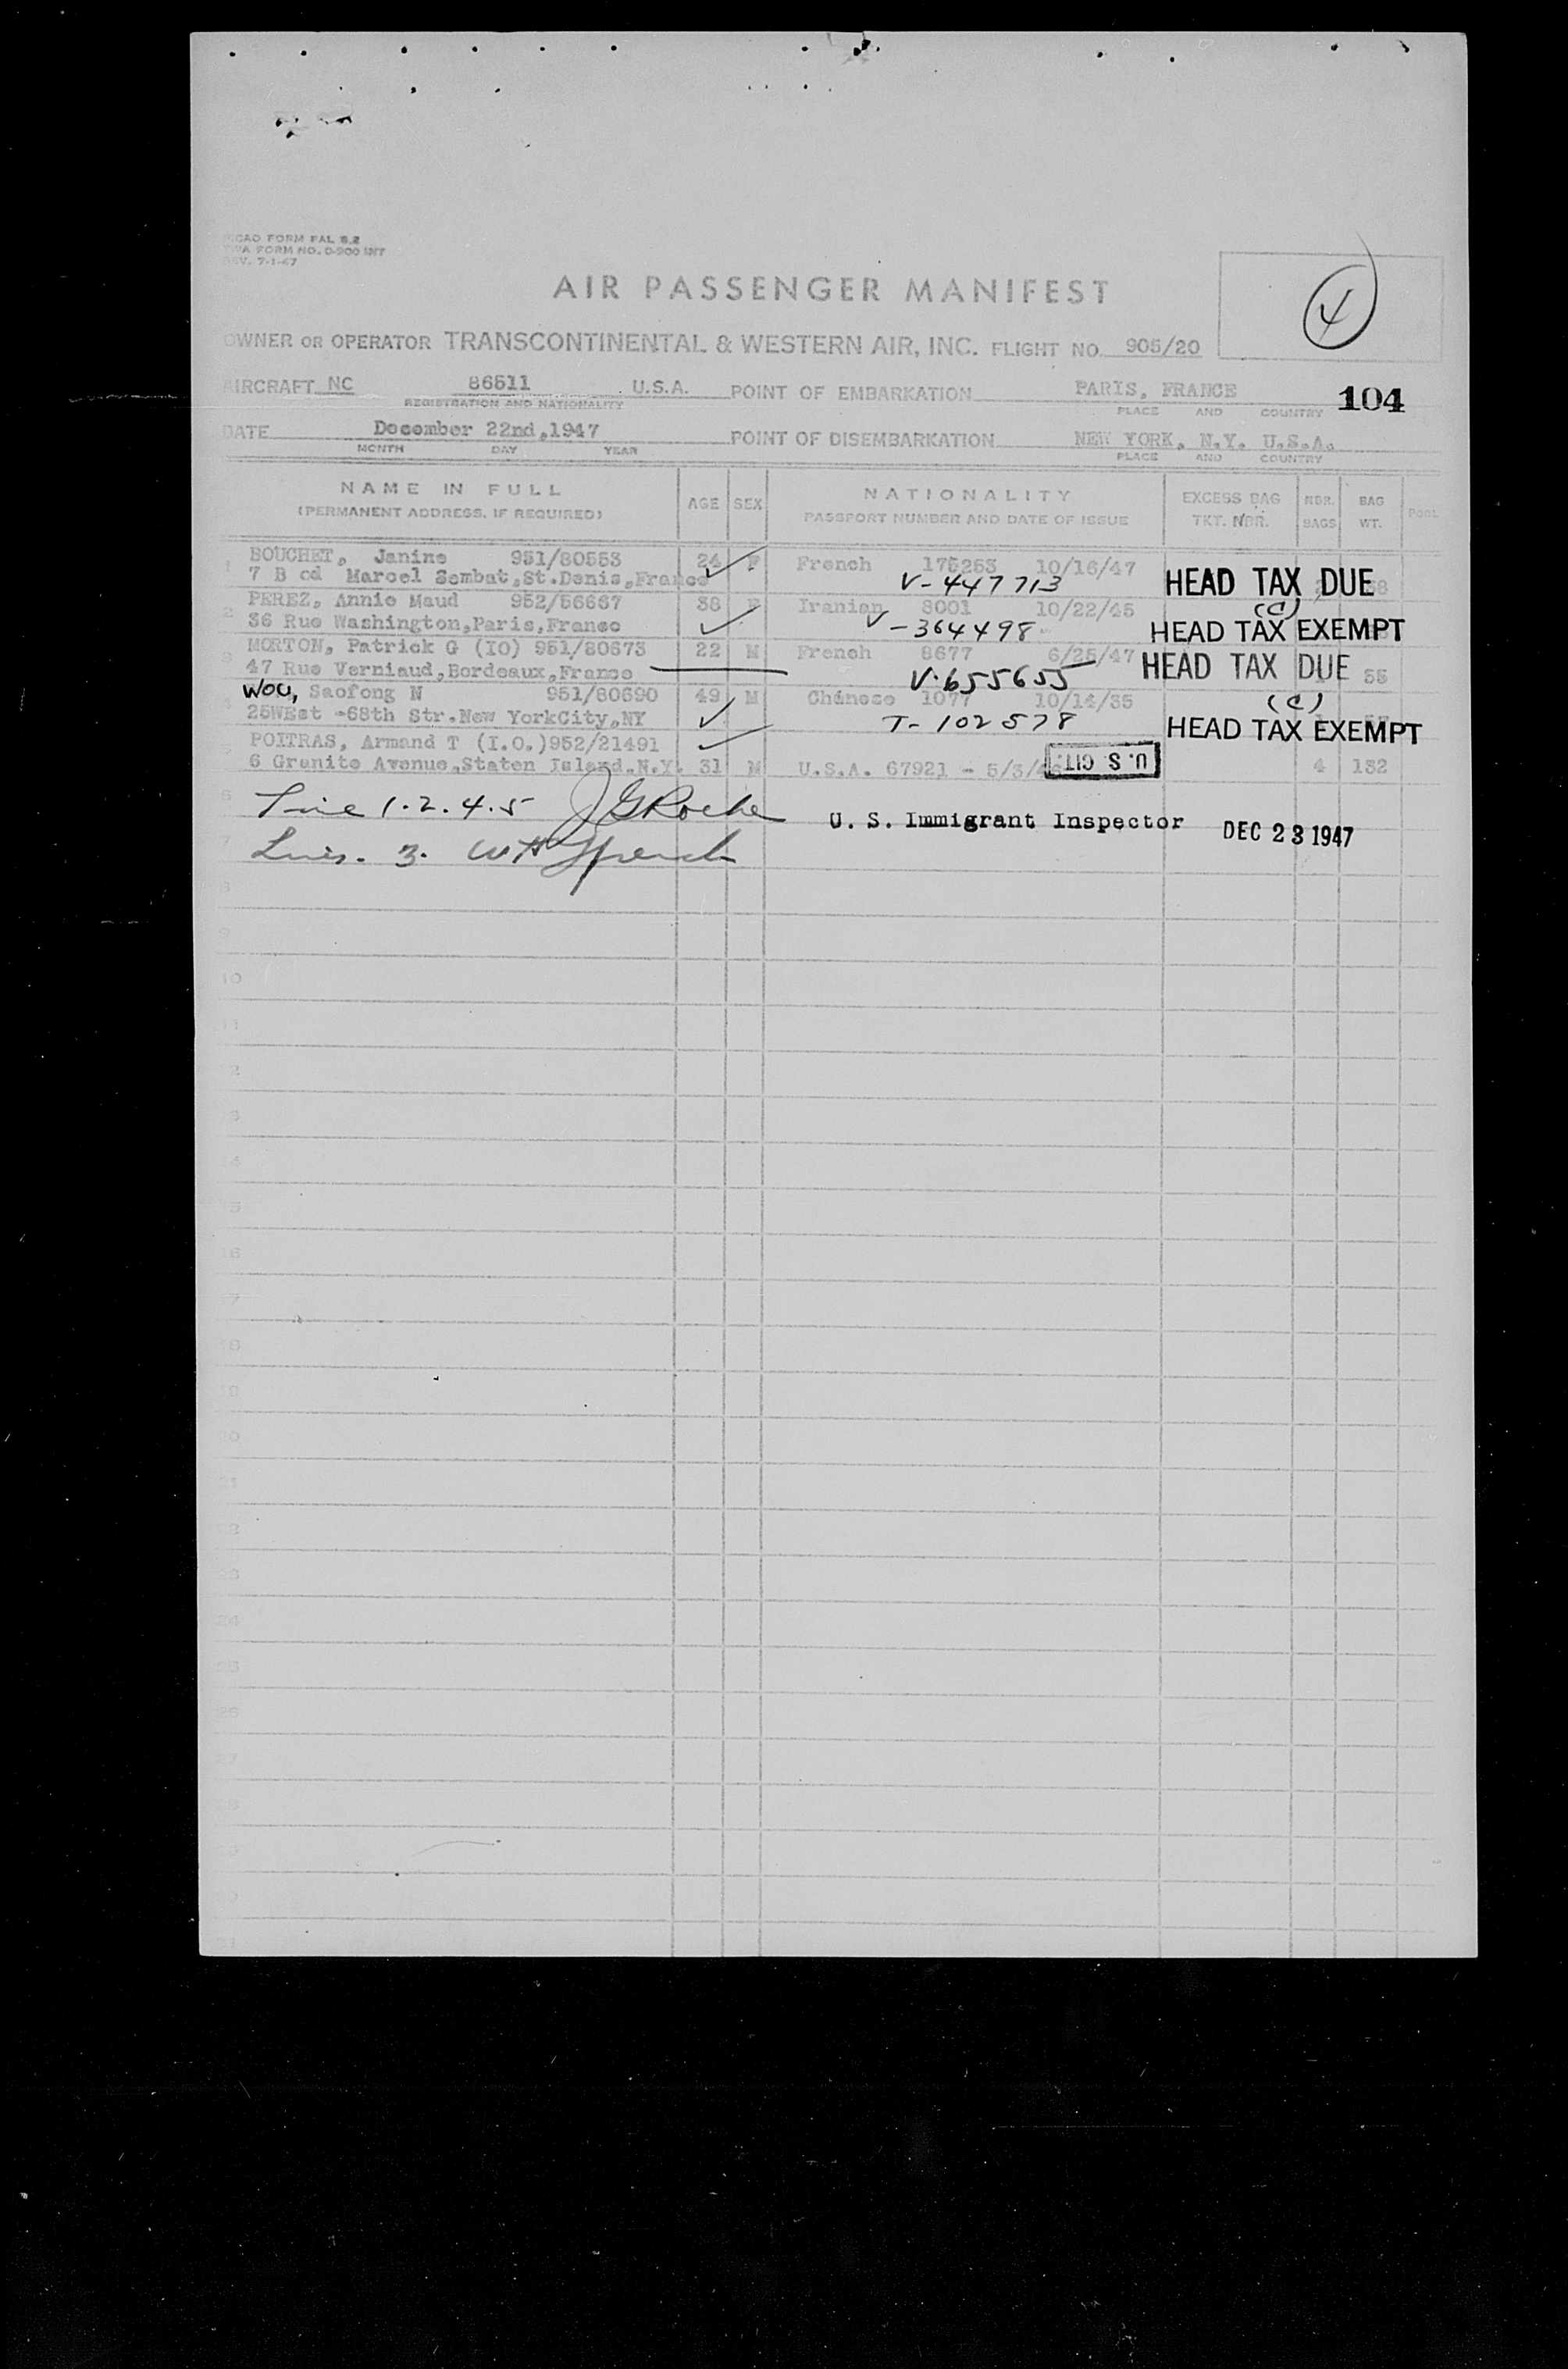 ICAO FORM FAL 8.2
TWA FORM NO. O-900 INT
REV. 7-1-47
AIR PASSENGER MANIFEST
4
OWNER OR OPERATOR TRANSCONTINENTAL & WESTERN AIR, INC. FLIGHT NO. 905/20
AIRCRAFT NC 86511 U.S.A. POINT OF EMBARKATION PARIS, FRANCE 104
REGISTRATION AND NATIONALITY PLACE AND COUNTRY
DATE December 22nd,1947 POINT OF DISEMBARKATION NEW YORK, N.Y. U.S.A.
MONTH DAY YEAR PLACE AND COUNTRY
NAME IN FULL AGE SEX NATIONALITY EXCESS BAG NBR. BAG
(PERMANENT ADDRESS, IF REQUIRED) PASSPORT NUMBER AND DATE OF ISSUE TKT. NBR. BAGS WT.
1 BOUCHET, Janine 951/80553 24 F French 175253 10/16/47 HEAD TAX DUE
7 B cd Marcel Sembat,St.Denis,France V-447713
2 PEREZ, Annie Maud 952/56667 38 F Iranian 3001 10/22/45 (C)
36 Rue Washington,Paris,France V-364498 HEAD TAX EXEMPT
MORTON, Patrick G (IO) 951/80673 22 M French 8677 6/25/47 HEAD TAX DUE 55
47 Rue Verniaud,Bordeaux,France V.655655
WOU, Saofong N 951/80690 49 M Chinese 1077 10/14/35 (C)
25WEst -68th Str.New YorkCity,NY T-102578 HEAD TAX EXEMPT
5 POITRAS, Armand T (I.O.)952/21491
6 Granite Avenue,Staten Island.N.Y. 31 M U.S.A. 67921 - 5/3/46 U.S. CIT. 4 132
6 Line 1.2.4.5 JGRoche U. S. Immigrant Inspector DEC 23 1947
7 Lines. 3.
8
9
10
11
12
13
14
15
16
17
18
19
20
21
22
23
24
25
26
27
28
29
30
31